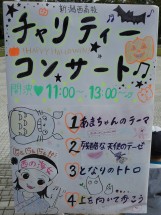 新潟西高校
チャリティー
コンサート
開演♥11:00〜13:00
1 あまちゃんのテーマ
2 残酷な天使のテーゼ
3 となりのトトロ
4 上を向いて歩こう